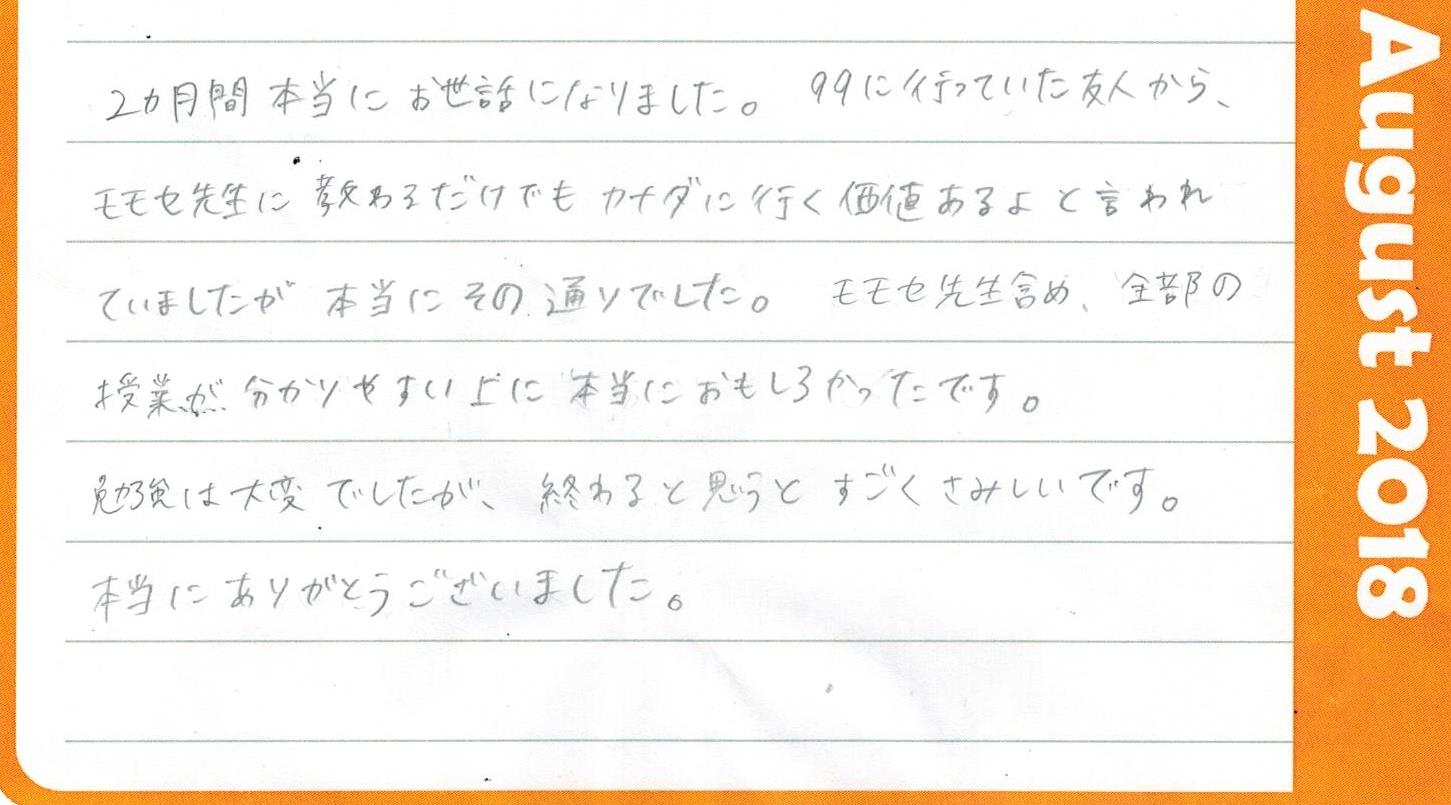 2カ月間 本当に お世話になりました。 99に行っていた友人から、
モモセ先生に 教わるだけでも カナダに行く価値あるよと言われ
ていましたが 本当にその通りでした。 モモセ先生含め、全部の
授業が 分かりやすい上に 本当におもしろかったです。
勉強は大変でしたが、終わると思うと すごくさみしいです。
本当にありがとうございました。
August 2018